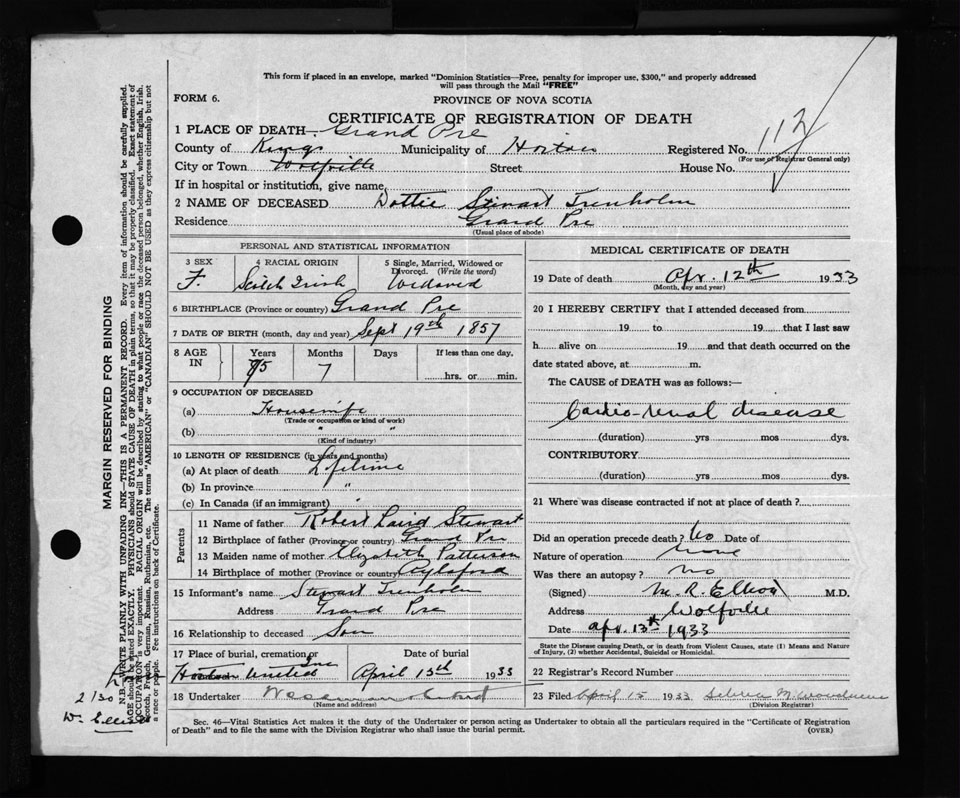 This form if placed in an envelope, marked "Dominion Statistics—Free, penalty for improper use, $300," and properly addressed
will pass through the Mail "FREE"
FORM 6.
PROVINCE OF NOVA SCOTIA
CERTIFICATE OF REGISTRATION OF DEATH
112
1 PLACE OF DEATH Grand Pre
County of Kings Municipality of Horton Registered No.
(For use of Registrar General only)
City or Town Wolfville Street House No.
If in hospital or institution, give name
2 NAME OF DECEASED Dottie Stewart Trenholm
Residence Grand Pre
(Usual place of abode)
PERSONAL AND STATISTICAL INFORMATION
3 SEX 4 RACIAL ORIGIN 5 Single, Married, Widowed or Divorced. (Write the word)
F. Scotch Irish Widowed
6 BIRTHPLACE (Province or country) Grand Pre
7 DATE OF BIRTH (month, day and year) Sept 19th 1857
8 AGE IN Years Months Days If less than one day,
75 7 hrs. or min.
9 OCCUPATION OF DECEASED
(a) Housewife
(Trade or occupation or kind of work)
(b) " "
(Kind of industry)
10 LENGTH OF RESIDENCE (in years and months)
(a) At place of death Lifetime
(b) In province "
(c) In Canada (if an immigrant) "
Parents
11 Name of father Robert Laird Stewart
12 Birthplace of father (Province or country) Grand Pre
13 Maiden name of mother Elizabeth Patterson
14 Birthplace of mother (Province or country) Aylsford
15 Informant's name Stewart Trenholm
Address Grand Pre
16 Relationship to deceased Son
17 Place of burial, cremation or Date of burial
Horton April 15th 1933
18 Undertaker
(Name and address)
MEDICAL CERTIFICATE OF DEATH
19 Date of death Apr. 12th 1933
(Month, day and year)
20 I HEREBY CERTIFY that I attended deceased from
19 to 19 that I last saw
h alive on 19 and that death occurred on the
date stated above, at m.
The CAUSE of DEATH was as follows:—
Cardio-renal disease
(duration) yrs mos dys.
CONTRIBUTORY
(duration) yrs mos dys.
21 Where was disease contracted if not at place of death?
Did an operation precede death? No Date of
Nature of operation None
Was there an autopsy? no
(Signed) M. R. Elliott M.D.
Address Wolfville
Date Apr. 13th 1933
State the Disease causing Death, or in death from Violent Causes, state (1) Means and Nature
of Injury, (2) whether Accidental, Suicidal or Homicidal.
22 Registrar's Record Number
23 Filed April 15 1933
(Division Registrar)
Sec. 46—Vital Statistics Act makes it the duty of the Undertaker or person acting as Undertaker to obtain all the particulars required in the "Certificate of Registration
of Death" and to file the same with the Division Registrar who shall issue the burial permit. (OVER)
MARGIN RESERVED FOR BINDING
N.B.—WRITE PLAINLY WITH UNFADING INK—THIS IS A PERMANENT RECORD. Every item of information should be carefully supplied.
AGE should be stated EXACTLY. PHYSICIANS should STATE CAUSE OF DEATH in plain terms, so that it may be properly classified. Exact statement of
OCCUPATION is very important. RACIAL ORIGIN will be described by stating to what people or race the deceased person belonged, whether English, Irish,
Scotch, French, German, Russian, Ruthenian, etc. The terms "AMERICAN" or "CANADIAN" SHOULD NOT BE USED as they express citizenship but not
a race or people. Fee instructions on back of Certificate.